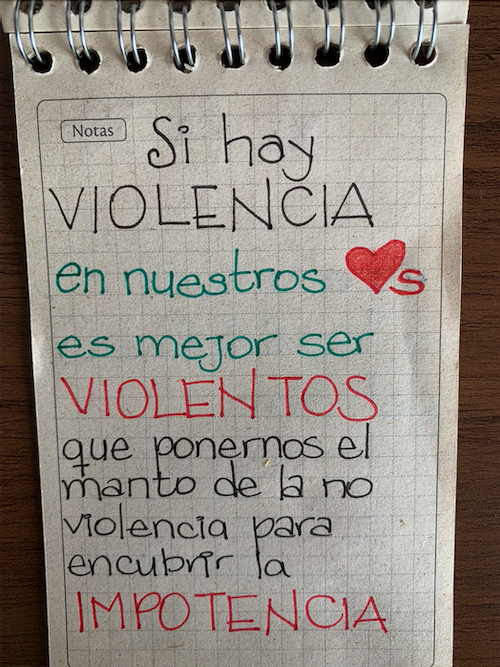 Notas
Si hay
VIOLENCIA
en nuestros ❤s
es mejor ser
VIOLENTOS
que ponernos el
manto de la no
violencia para
encubrir la
IMPOTENCIA